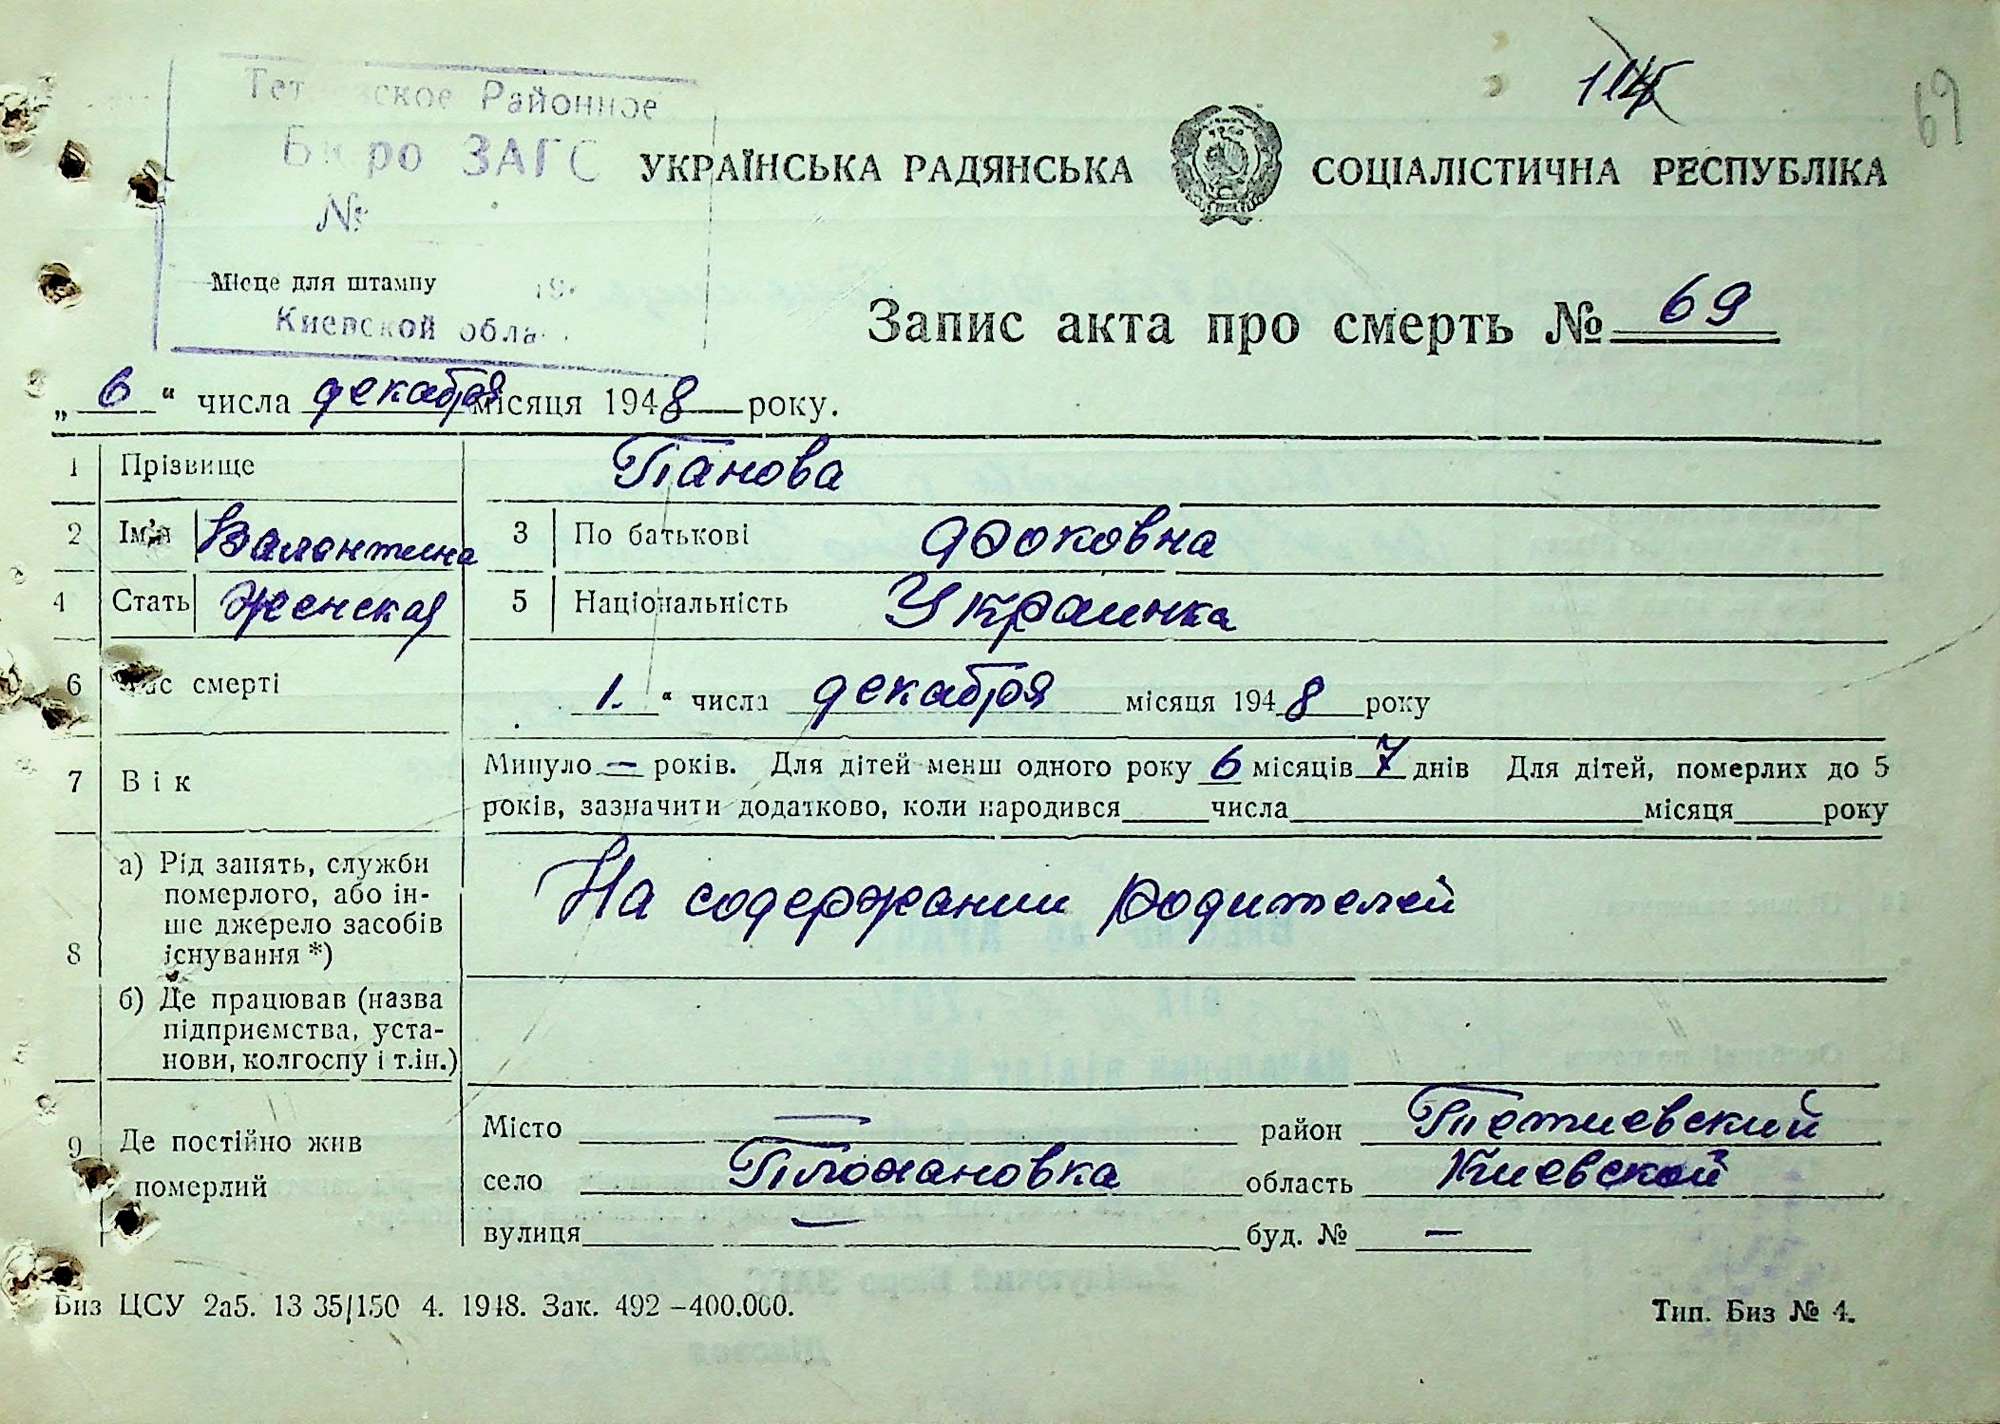 114
69
Районное
Бюро ЗАГС
№
УКРАЇНСЬКА РАДЯНСЬКА СОЦІАЛІСТИЧНА РЕСПУБЛІКА
Місце для штампу
Киевской обла
Запис акта про смерть № 69
„ 6 “ числа декабря місяця 1948 року.
1 Прізвище Панова
2 Ім'я Валентина 3 По батькові Фоковна
4 Стать Женская 5 Національність Украинка
6 Час смерті 1. “ числа декабря місяця 1948 року
7 Вік Минуло — років. Для дітей менш одного року 6 місяців 7 днів Для дітей, померлих до 5
років, зазначити додатково, коли народився числа місяця року
8 а) Рід занять, служби
померлого, або ін-
ше джерело засобів
існування *)
На содержании родителей
б) Де працював (назва
підприємства, уста-
нови, колгоспу і т.ін.)
9 Де постійно жив
померлий
Місто — район Тетиевский
село Плохановка область Киевской
вулиця — буд. № —
Биз ЦСУ 2а5. 13 35/150 4. 1948. Зак. 492 —400.000.
Тип. Биз № 4.